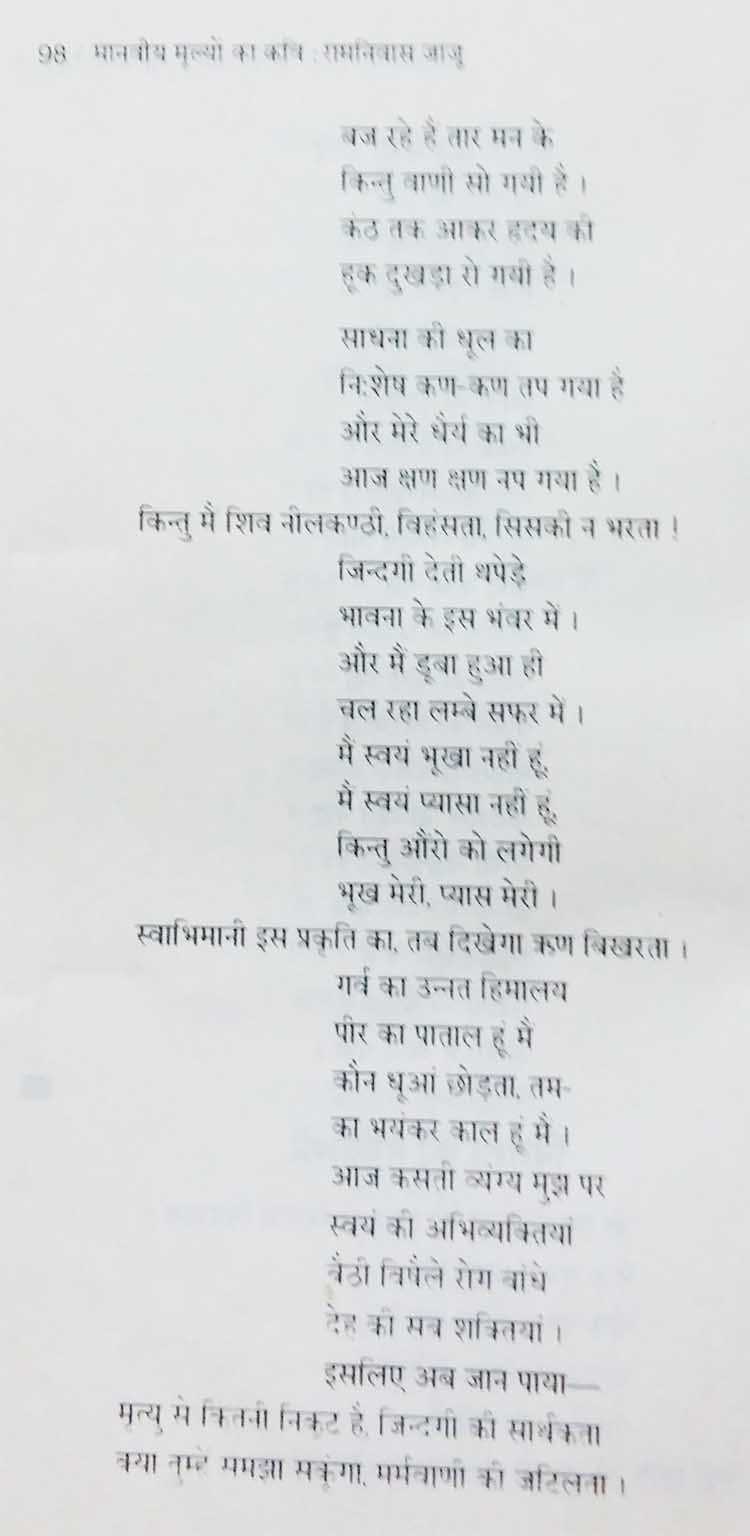 98 मानवीय मूल्यों का कवि : रामनिवास जाजू
बज रहे हैं तार मन के
किन्तु वाणी सो गयी है ।
कंठ तक आकर हृदय की
हूक दुखड़ा रो गयी है ।
साधना की धूल का
नि:शेष कण-कण तप गया है
और मेरे धैर्य का भी
आज क्षण क्षण नप गया है ।
किन्तु मैं शिव नीलकण्ठी, विहंसता, सिसकी न भरता !
जिन्दगी देती थपेड़े
भावना के इस भंवर में ।
और मैं डूबा हुआ ही
चल रहा लम्बे सफर में ।
मैं स्वयं भूखा नहीं हूं,
मैं स्वयं प्यासा नहीं हूं,
किन्तु औरों को लगेगी
भूख मेरी, प्यास मेरी ।
स्वाभिमानी इस प्रकृति का, तब दिखेगा ऋण बिखरता ।
गर्व का उन्नत हिमालय
पीर का पाताल हूं मैं
कौन धूआं छोड़ता, तम-
का भयंकर काल हूं मैं ।
आज कसती व्यंग्य मुझ पर
स्वयं की अभिव्यक्तियां
बैठी विषैले रोग बांधे
देह की सब शक्तियां ।
इसलिए अब जान पाया—
मृत्यु से कितनी निकट है, जिन्दगी की सार्थकता
क्या तुम्हें समझा सकूंगा, मर्मवाणी की जटिलता ।